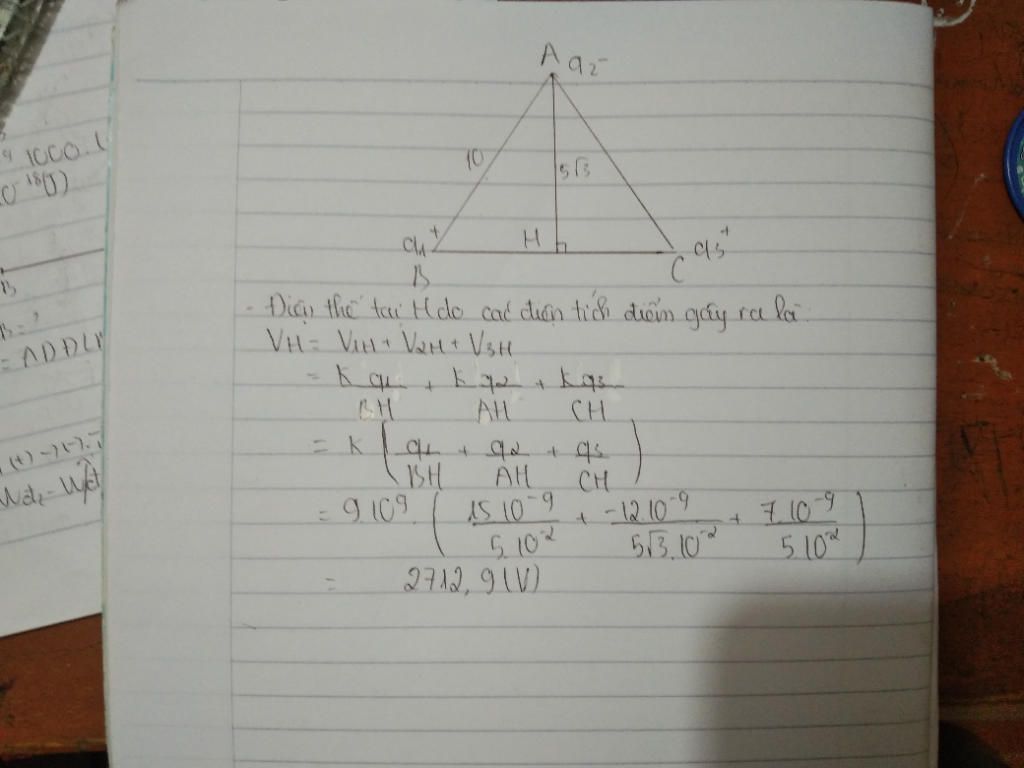 1000.
0⁻¹⁸(J)
B
= ADDL
A q₂⁻
10
5√3
q₁⁺ H q₃⁺
B C
- Điện thế tại H do các điện tích điểm gây ra là:
V_H = V₁H + V₂H + V₃H
= K q₁/BH + K q₂/AH + K q₃/CH
= K (q₁/BH + q₂/AH + q₃/CH)
= 9.10⁹.(15.10⁻⁹/5.10⁻² + -12.10⁻⁹/5√3.10⁻² + 7.10⁻⁹/5.10⁻²)
= 2712,9(V)